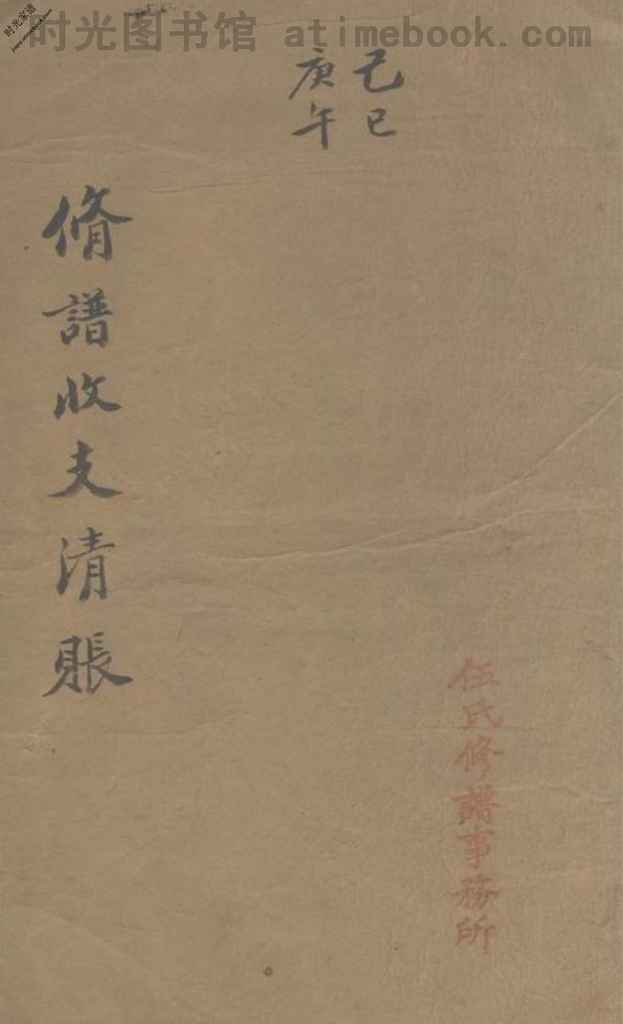 时光图书馆 atimebook.com
时光家谱
己巳
庚午
脩譜收支清賬
伍氏修譜事務所